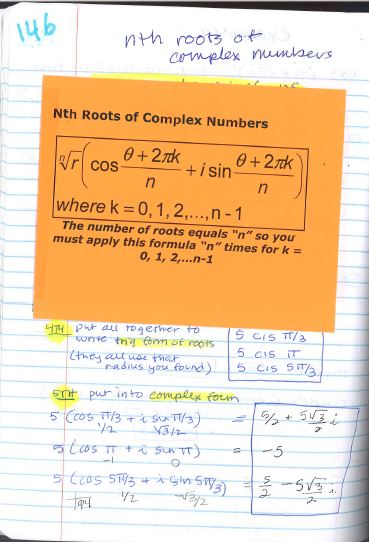 146
nth roots of
complex numbers
Nth Roots of Complex Numbers
ⁿ√r ( cos (θ + 2πk)/n + i sin (θ + 2πk)/n )
where k = 0, 1, 2,...,n - 1
The number of roots equals "n" so you
must apply this formula "n" times for k =
0, 1, 2,...n-1
4TH put all together to
write trig form of roots
(they all use that
radius you found)
5 cis π/3
5 cis π
5 cis 5π/3
5TH put into complex form
5 (cos π/3 + i sin π/3) = 5/2 + 5√3/2 i
1/2 √3/2
5 (cos π + i sin π) = -5
-1 0
5 (cos 5π/3 + i sin 5π/3) = 5/2 - 5√3/2 i
1/2 -√3/2